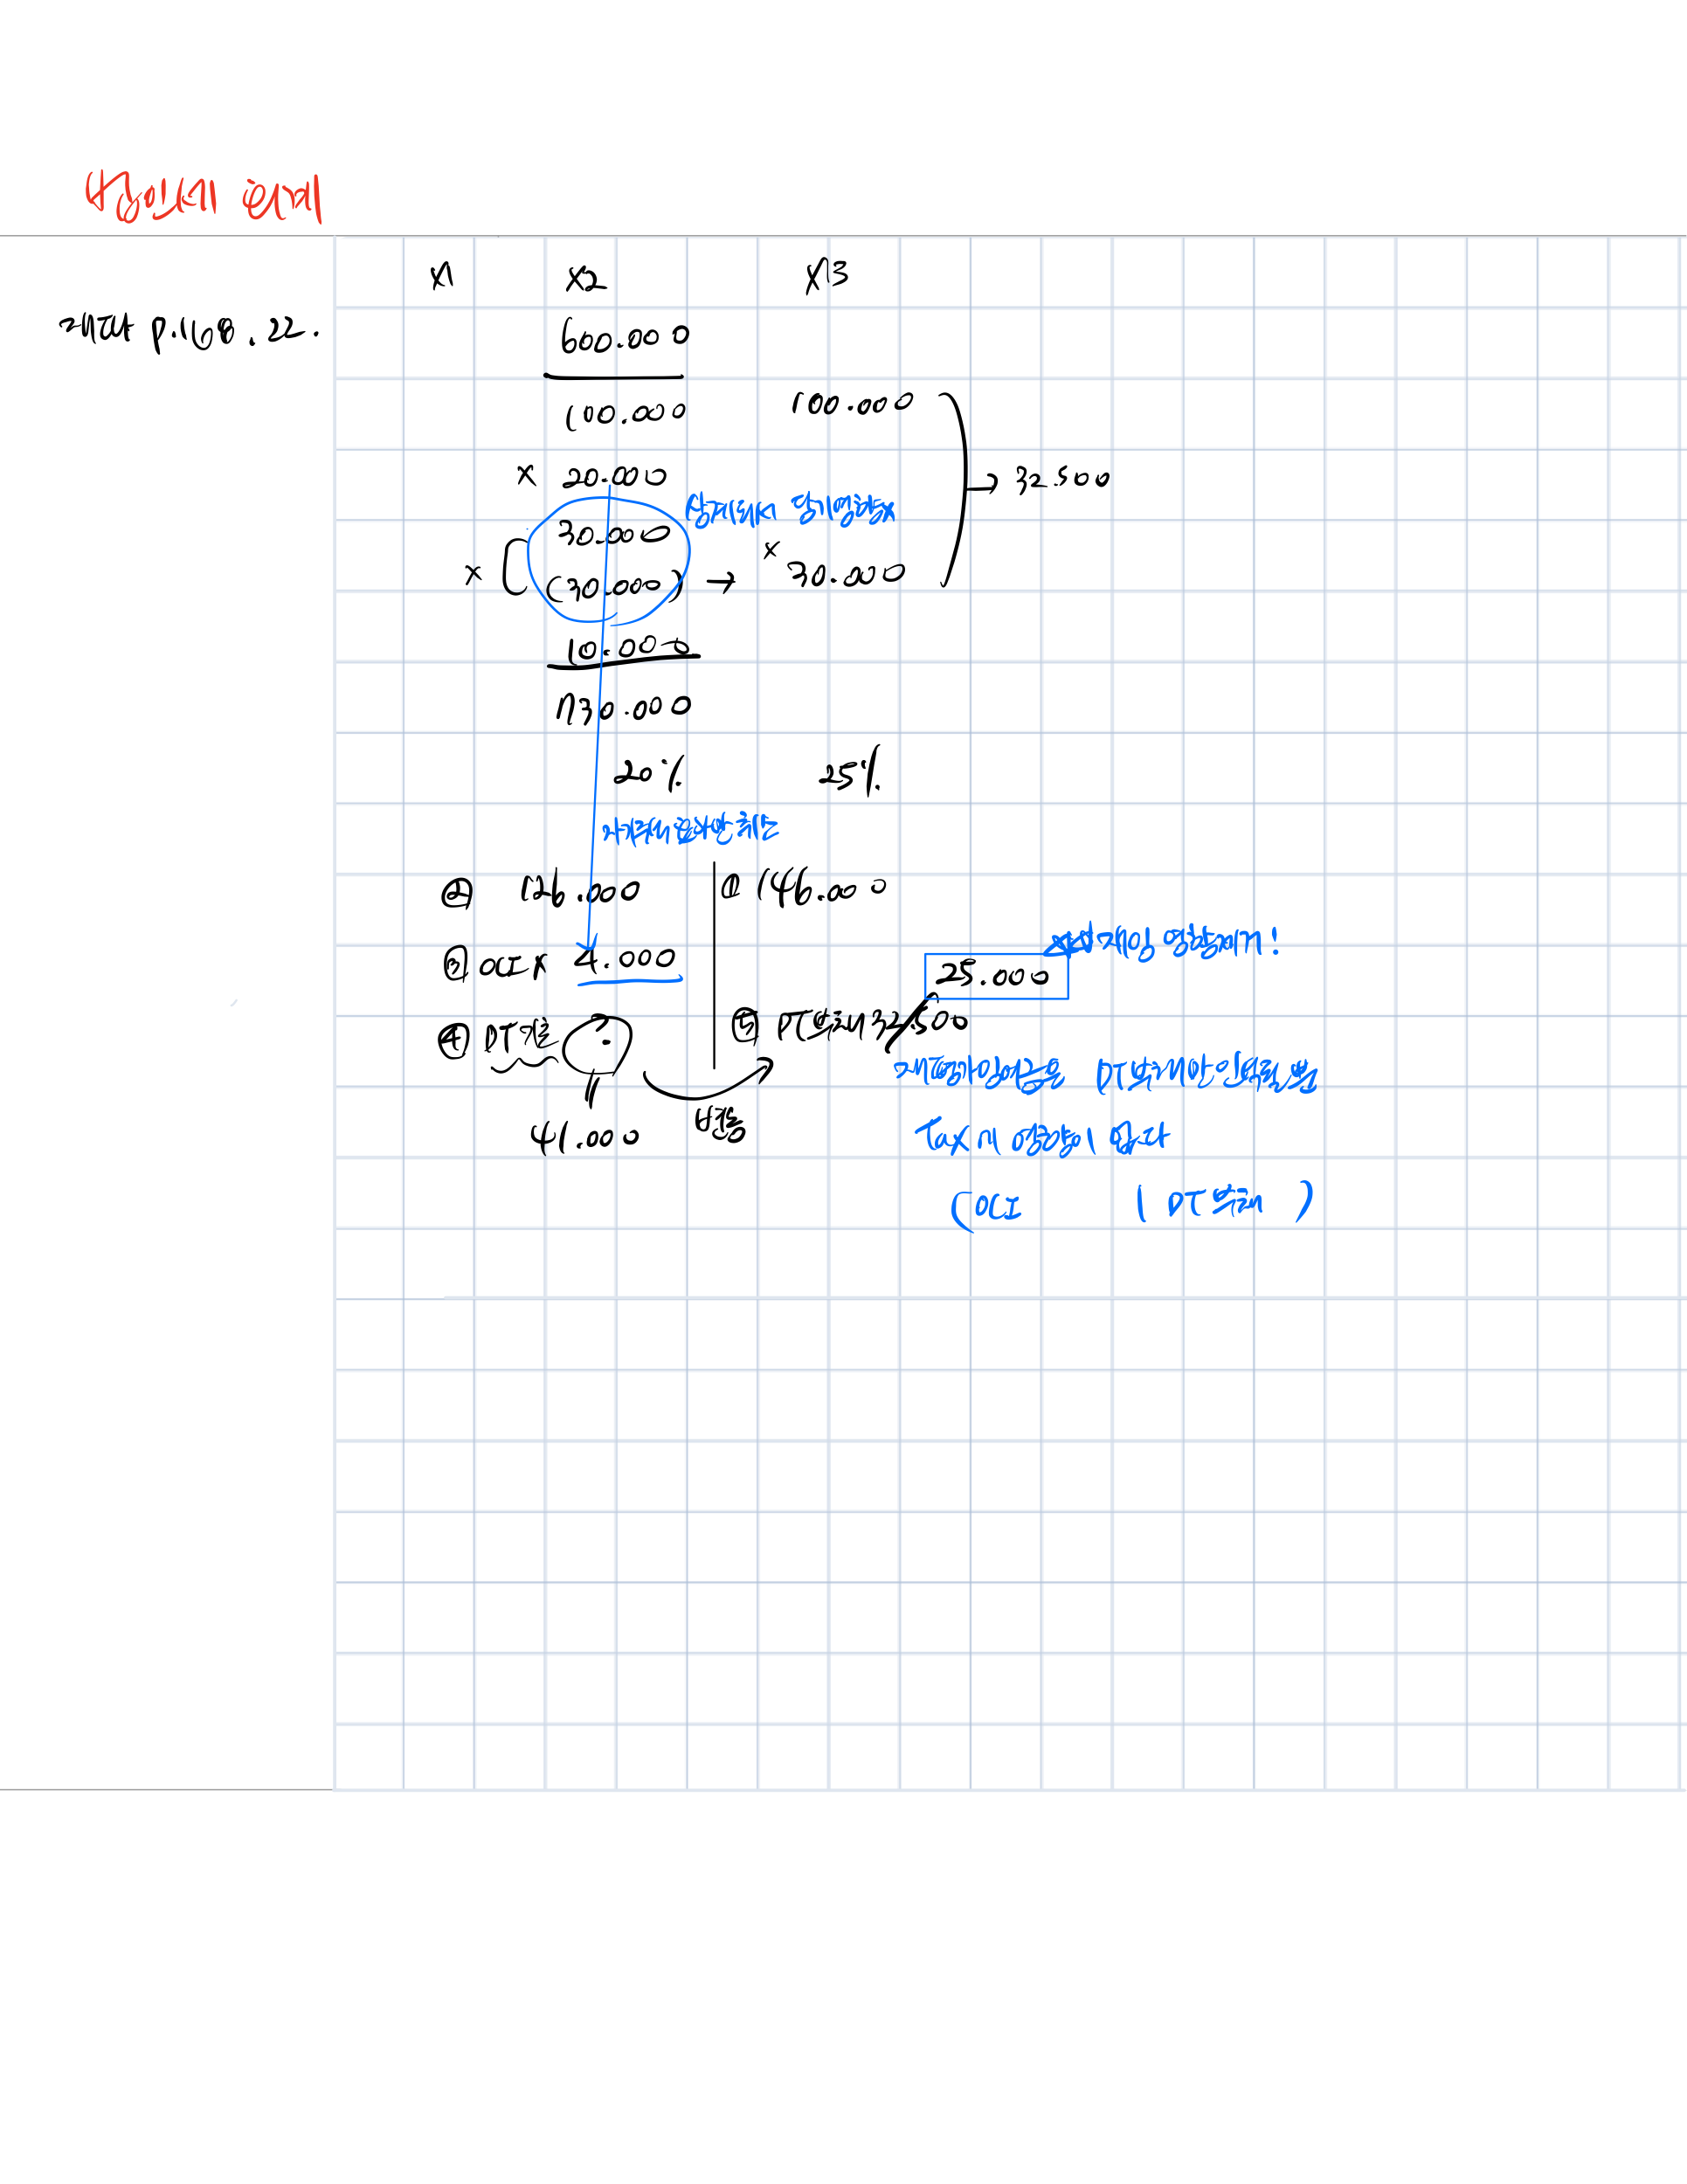 법인세 회계
재무 p.168. 22.
X1 X2 X3
600.000
100.000 100.000
x 20.000 → 32.500
30.000 상계되서 당기영향x
x [ (30.000) → x 30.000
10.000
730.000
20% 25%
자기주식 효과만 취소
② 126.000 ① 146.000
③ OCI x 4.000
25.000 재잉 영향제거!
④ DT기초 ? ⑤ DT부채 32.500
재평가잉여금은 DT부채만 인식될뿐
41.000 변동
Tax에 영향이 없다
(OCI | DT부채 )